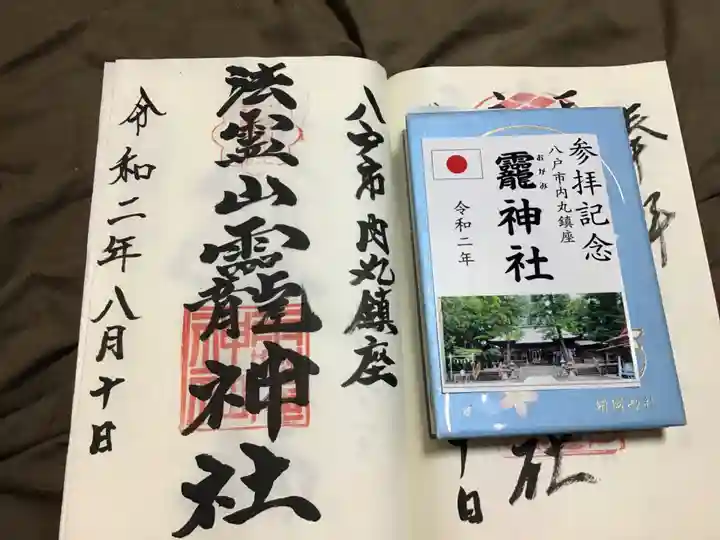 八戸市内丸鎮座
法霊山龗神社
令和二年八月十日
参拝記念
八戸市内丸鎮座
おがみ
龗神社
令和二年
奉拝
社
日